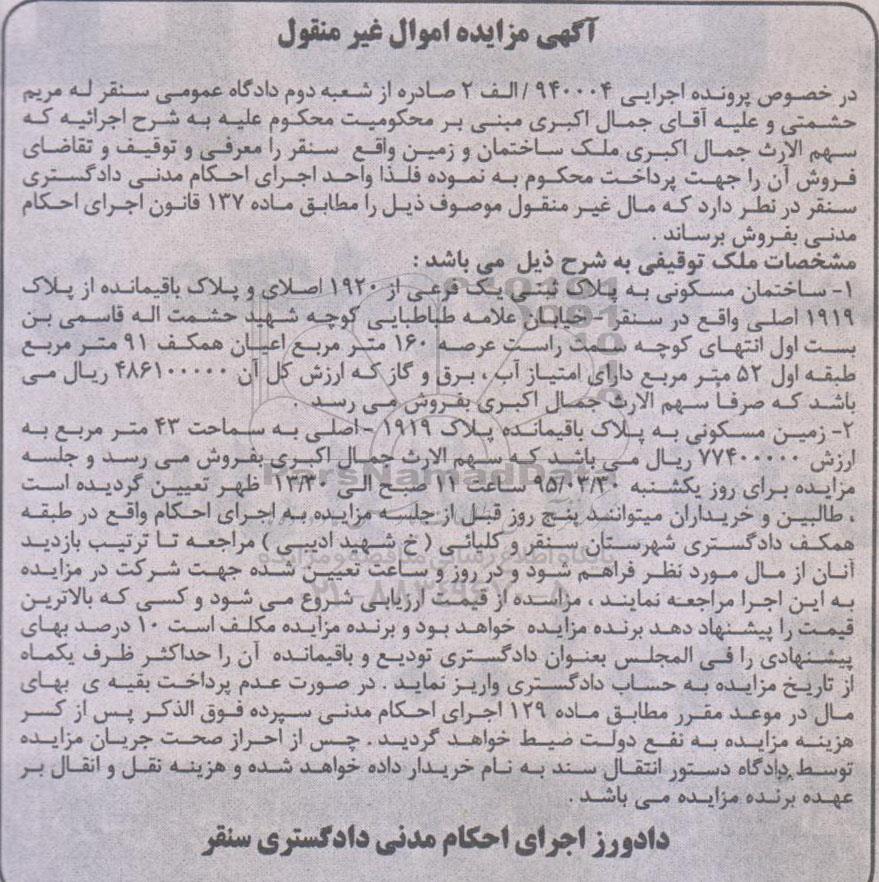 آگهی مزایده اموال غیر منقول
در خصوص پرونده اجرایی ۹۴۰۰۰۴ /الف ۲ صادره از شعبه دوم دادگاه عمومی سنقر له مریم
حشمتی و علیه آقای جمال اکبری مبنی بر محکومیت محکوم علیه به شرح اجرائیه که
سهم الارث جمال اکبری ملک ساختمان و زمین واقع سنقر را معرفی و توقیف و تقاضای
فروش آن را جهت پرداخت محکوم به نموده فلذا واحد اجرای احکام مدنی دادگستری
سنقر در نظر دارد که مال غیر منقول موصوف ذیل را مطابق ماده ۱۳۷ قانون اجرای احکام
مدنی بفروش برساند .
مشخصات ملک توقیفی به شرح ذیل می باشد :
۱- ساختمان مسکونی به پلاک ثبتی یک فرعی از ۱۹۲۰ اصلای و پلاک باقیمانده از پلاک
۱۹۱۹ اصلی واقع در سنقر - خیابان علامه طباطبایی کوچه شهید حشمت اله قاسمی بن
بست اول انتهای کوچه سمت راست عرصه ۱۶۰ متر مربع اعیان همکف ۹۱ متر مربع
طبقه اول ۵۲ متر مربع دارای امتیاز آب ، برق و گاز که ارزش کل آن ۴۸۶۱۰۰۰۰۰ ریال می
باشد که صرفا سهم الارث جمال اکبری بفروش می رسد .
۲- زمین مسکونی به پلاک باقیمانده پلاک ۱۹۱۹ -اصلی به سماحت ۴۳ متر مربع به
ارزش ۷۷۴۰۰۰۰۰ ریال می باشد که سهم الارث جمال اکبری بفروش می رسد و جلسه
مزایده برای روز یکشنبه ۹۵/۰۳/۳۰ ساعت ۱۱ صبح الی ۱۳/۳۰ ظهر تعیین گردیده است
، طالبین و خریداران میتوانند پنج روز قبل از جلسه مزایده به اجرای احکام واقع در طبقه
همکف دادگستری شهرستان سنقر و کلیائی ( خ شهید ادیبی ) مراجعه تا ترتیب بازدید
آنان از مال مورد نظر فراهم شود و در روز و ساعت تعیین شده جهت شرکت در مزایده
به این اجرا مراجعه نمایند ، مزایده از قیمت ارزیابی شروع می شود و کسی که بالاترین
قیمت را پیشنهاد دهد برنده مزایده خواهد بود و برنده مزایده مکلف است ۱۰ درصد بهای
پیشنهادی را فی المجلس بعنوان دادگستری تودیع و باقیمانده آن را حداکثر ظرف یکماه
از تاریخ مزایده به حساب دادگستری واریز نماید . در صورت عدم پرداخت بقیه ی بهای
مال در موعد مقرر مطابق ماده ۱۲۹ اجرای احکام مدنی سپرده فوق الذکر پس از کسر
هزینه مزایده به نفع دولت ضبط خواهد گردید . چس از احراز صحت جریان مزایده
توسط دادگاه دستور انتقال سند به نام خریدار داده خواهد شده و هزینه نقل و انقال بر
عهده برنده مزایده می باشد .
دادورز اجرای احکام مدنی دادگستری سنقر
ParsNamadData